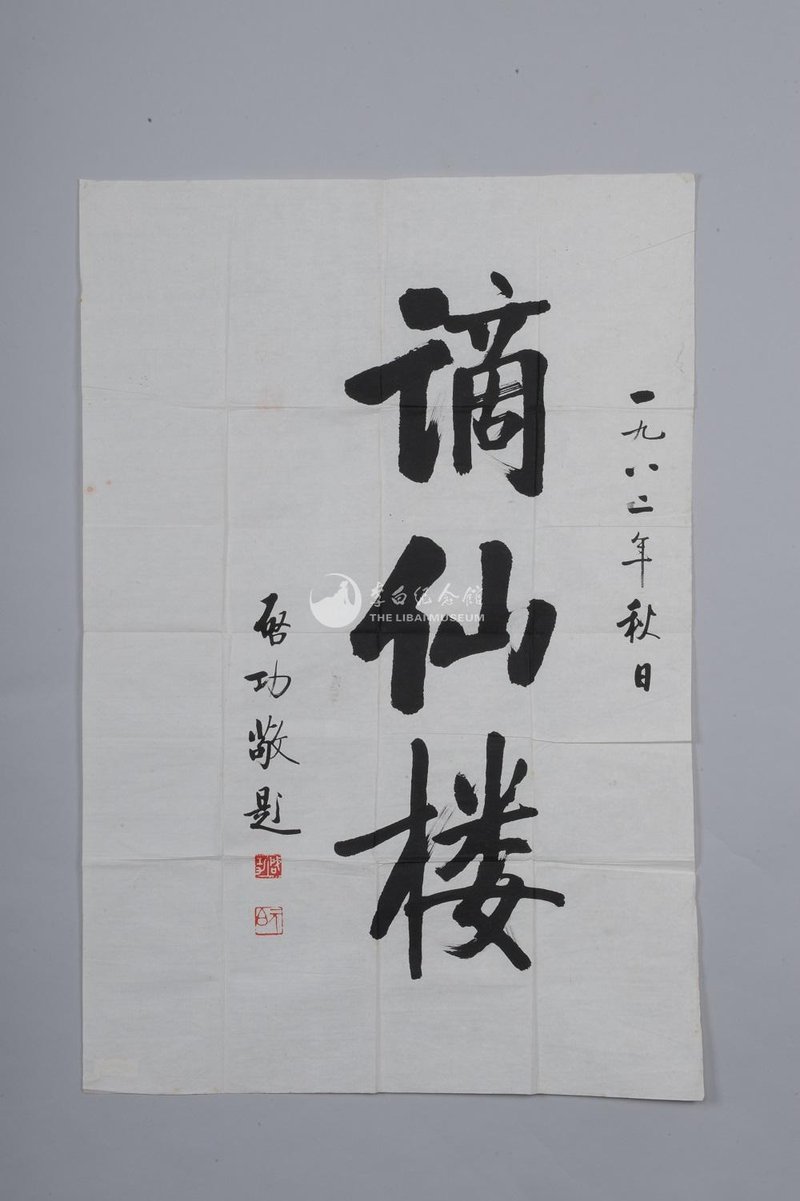 一九八二年秋日
谪仙楼
启功敬题
李白纪念馆
THE LIBAI MUSEUM